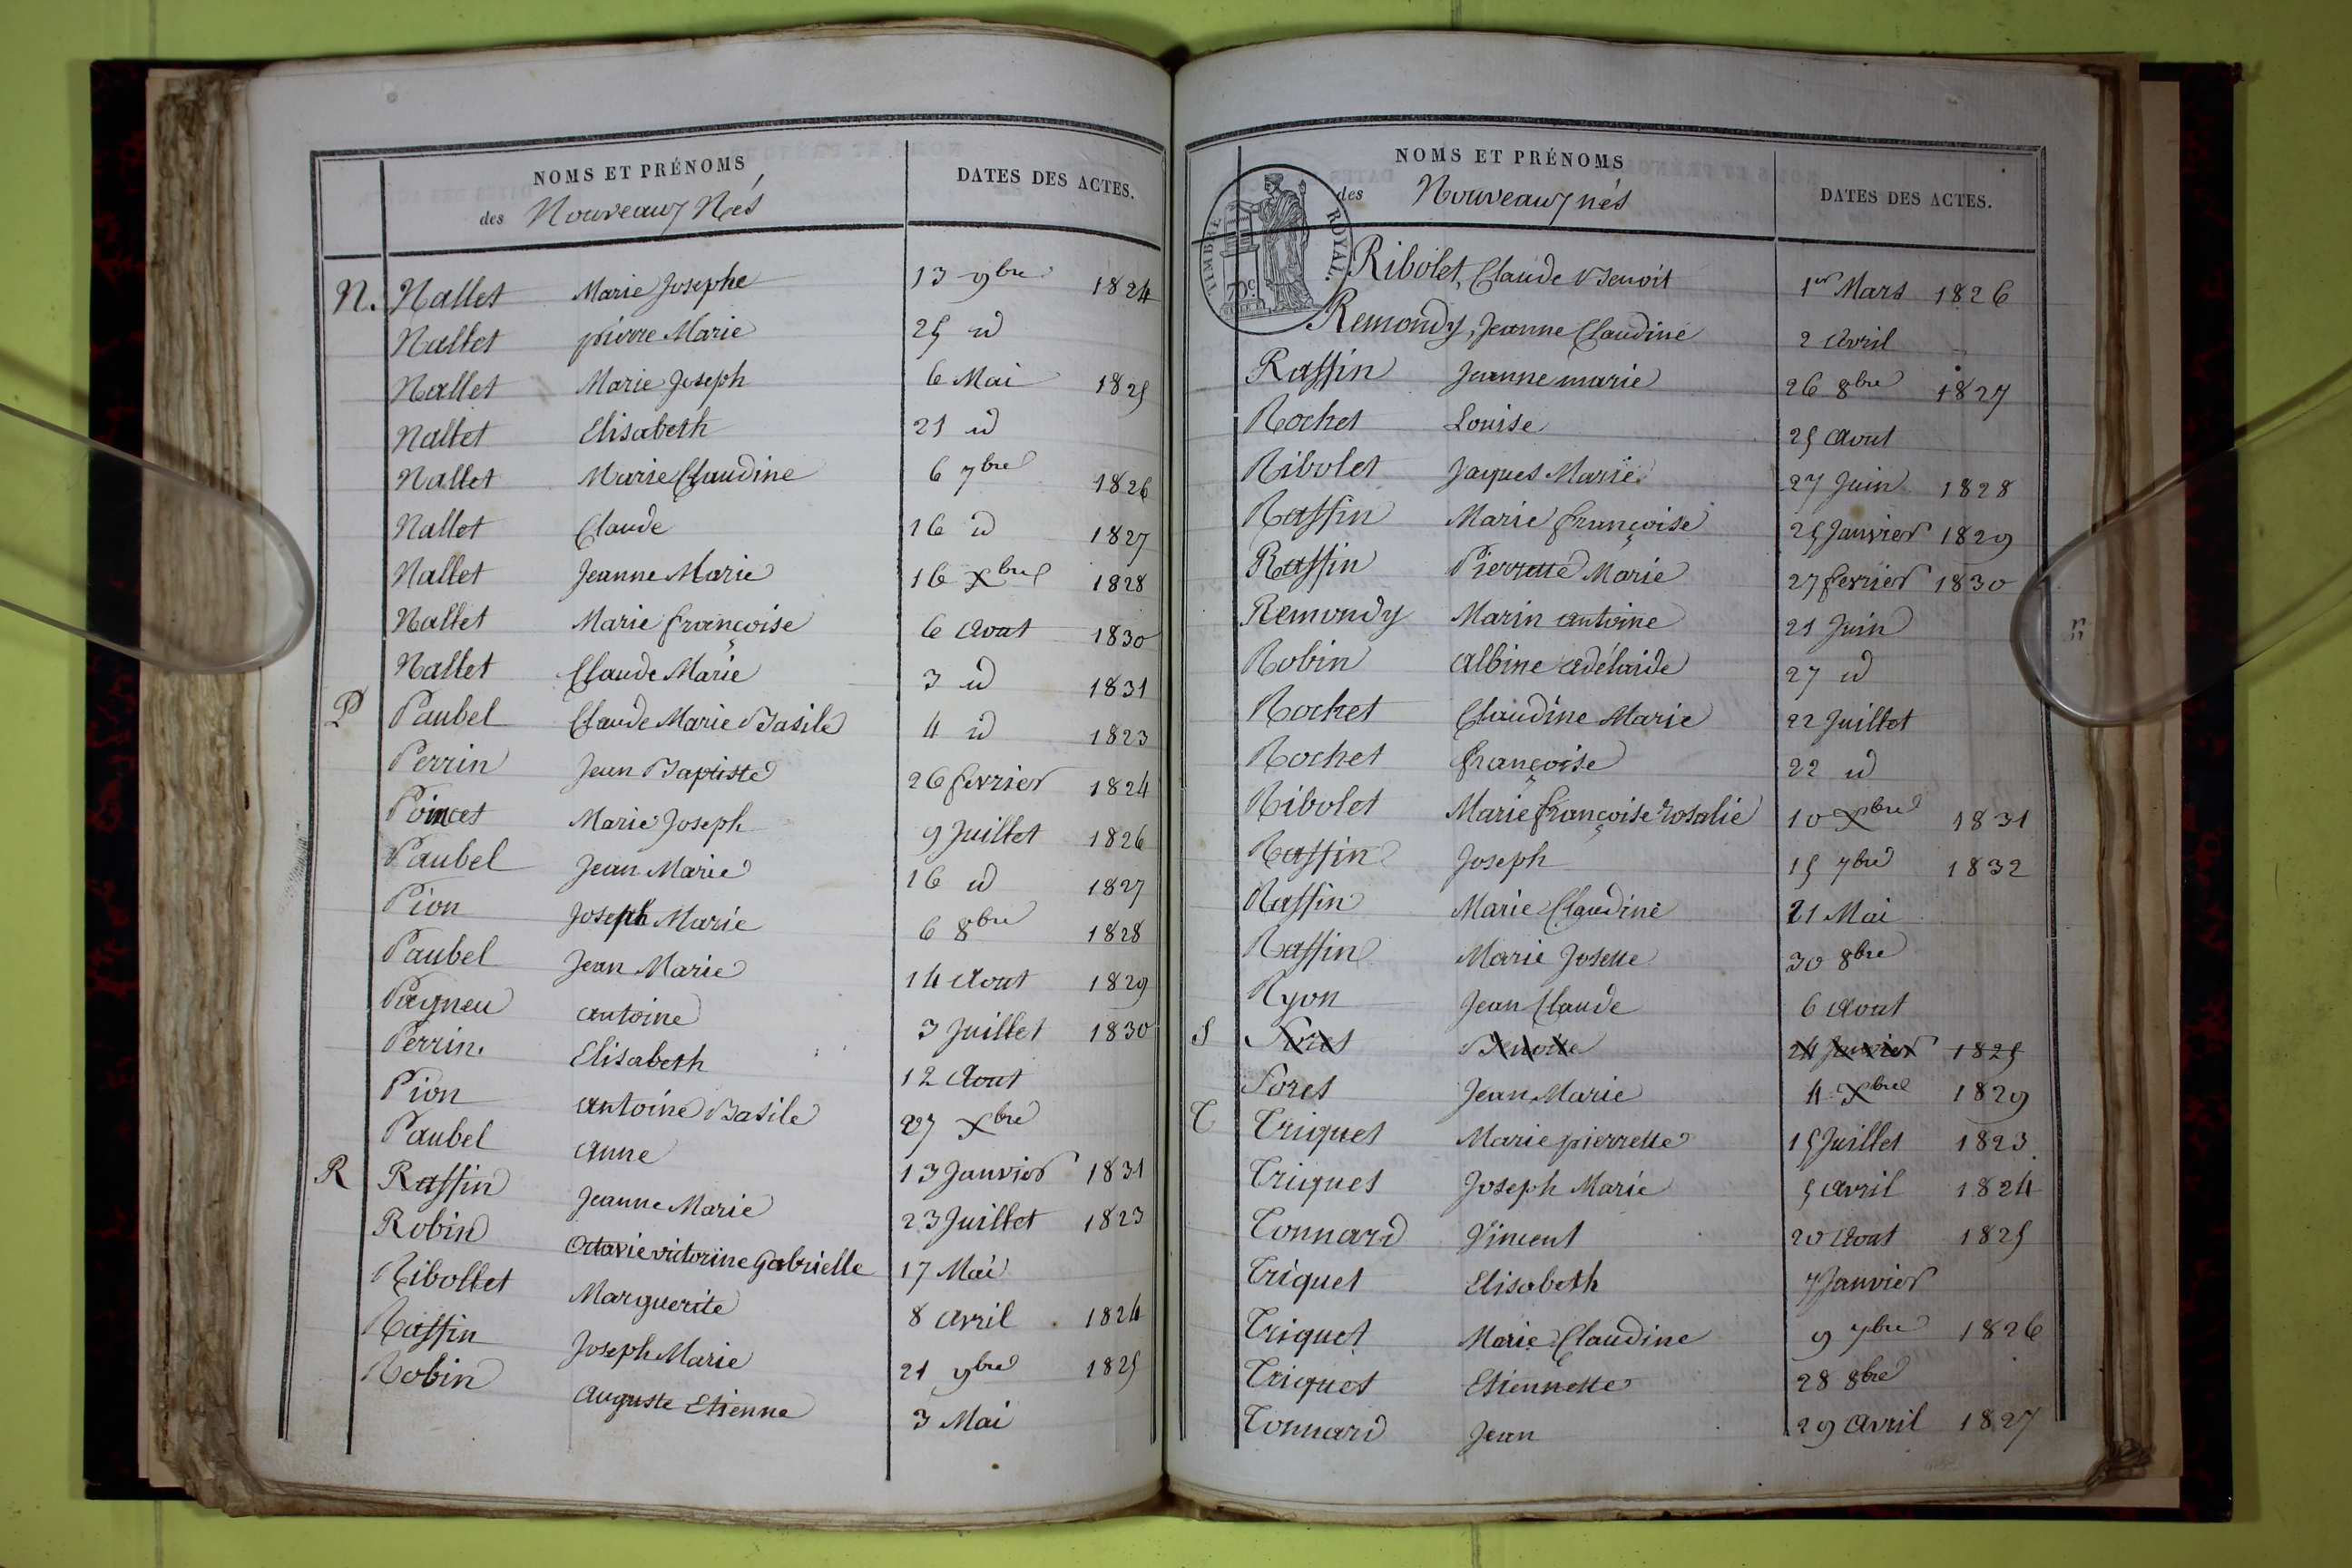 NOMS ET PRÉNOMS
des Nouveaux Nés
DATES DES ACTES.
N. Nallet Marie Josephe 13 9bre 1824
Nallet pierre Marie 25 id
Nallet Marie Joseph 6 Mai 1825
Nallet Elisabeth 21 id
Nallet Marie Claudine 6 7bre 1826
Nallet Claude 16 id 1827
Nallet Jeanne Marie 16 Xbre 1828
Nallet Marie françoise 6 Aout 1830
Nallet Claude Marie 3 id 1831
P Paubel Claude Marie Basile 4 id 1823
Perrin Jean Baptiste 26 fevrier 1824
Poincet Marie Joseph 9 Juillet 1826
Paubel Jean Marie 16 id 1827
Pion Joseph Marie 6 8bre 1828
Paubel Jean Marie 14 Aout 1829
Pagneu antoine 3 Juillet 1830
Perrin. Elisabeth 12 Aout
Pion antoine Basile 27 Xbre
Paubel anne 13 Janvier 1831
R Raffin Jeanne Marie 23 Juillet 1823
Robin Octavie victorine Gabrielle 17 Mai
Ribollet Marguerite 8 avril 1824
Raffin Joseph Marie 21 9bre 1825
Robin Auguste Etienne 3 Mai
NOMS ET PRÉNOMS
des Nouveaux nés
DATES DES ACTES.
TIMBRE ROYAL.
Ribolet, Claude Benoit 1er Mars 1826
Remondy, Jeanne Claudine 2 Avril
Raffin Jeanne marie 26 8bre 1827
Rochet Louise 25 Aout
Ribolet Jaques Marie 27 Juin 1828
Raffin Marie françoise 25 Janvier 1829
Raffin Pierrette Marie 27 fevrier 1830
Remondy Marin antoine 21 Juin
Robin Albine adélaide 27 id
Rochet Claudine Marie 22 Juillet
Rochet françoise 22 id
Ribolet Marie françoise rosalie 10 Xbre 1831
Raffin Joseph 15 7bre 1832
Raffin Marie Claudine 21 Mai
Raffin Marie Josette 30 8bre
Ryon Jean Claude 6 Aout
S Sores Benoite 24 Janvier 1825
Sores Jean Marie 4 Xbre 1829
T Triquet Marie pierrette 15 Juillet 1823
Triquet Joseph Marie 5 avril 1824
Tonnard Vincent 20 Aout 1825
Triquet Elisabeth 7 Janvier
Triquet Marie Claudine 9 7bre 1826
Triquet Etiennette 28 8bre
Tonnard Jean 29 Avril 1827